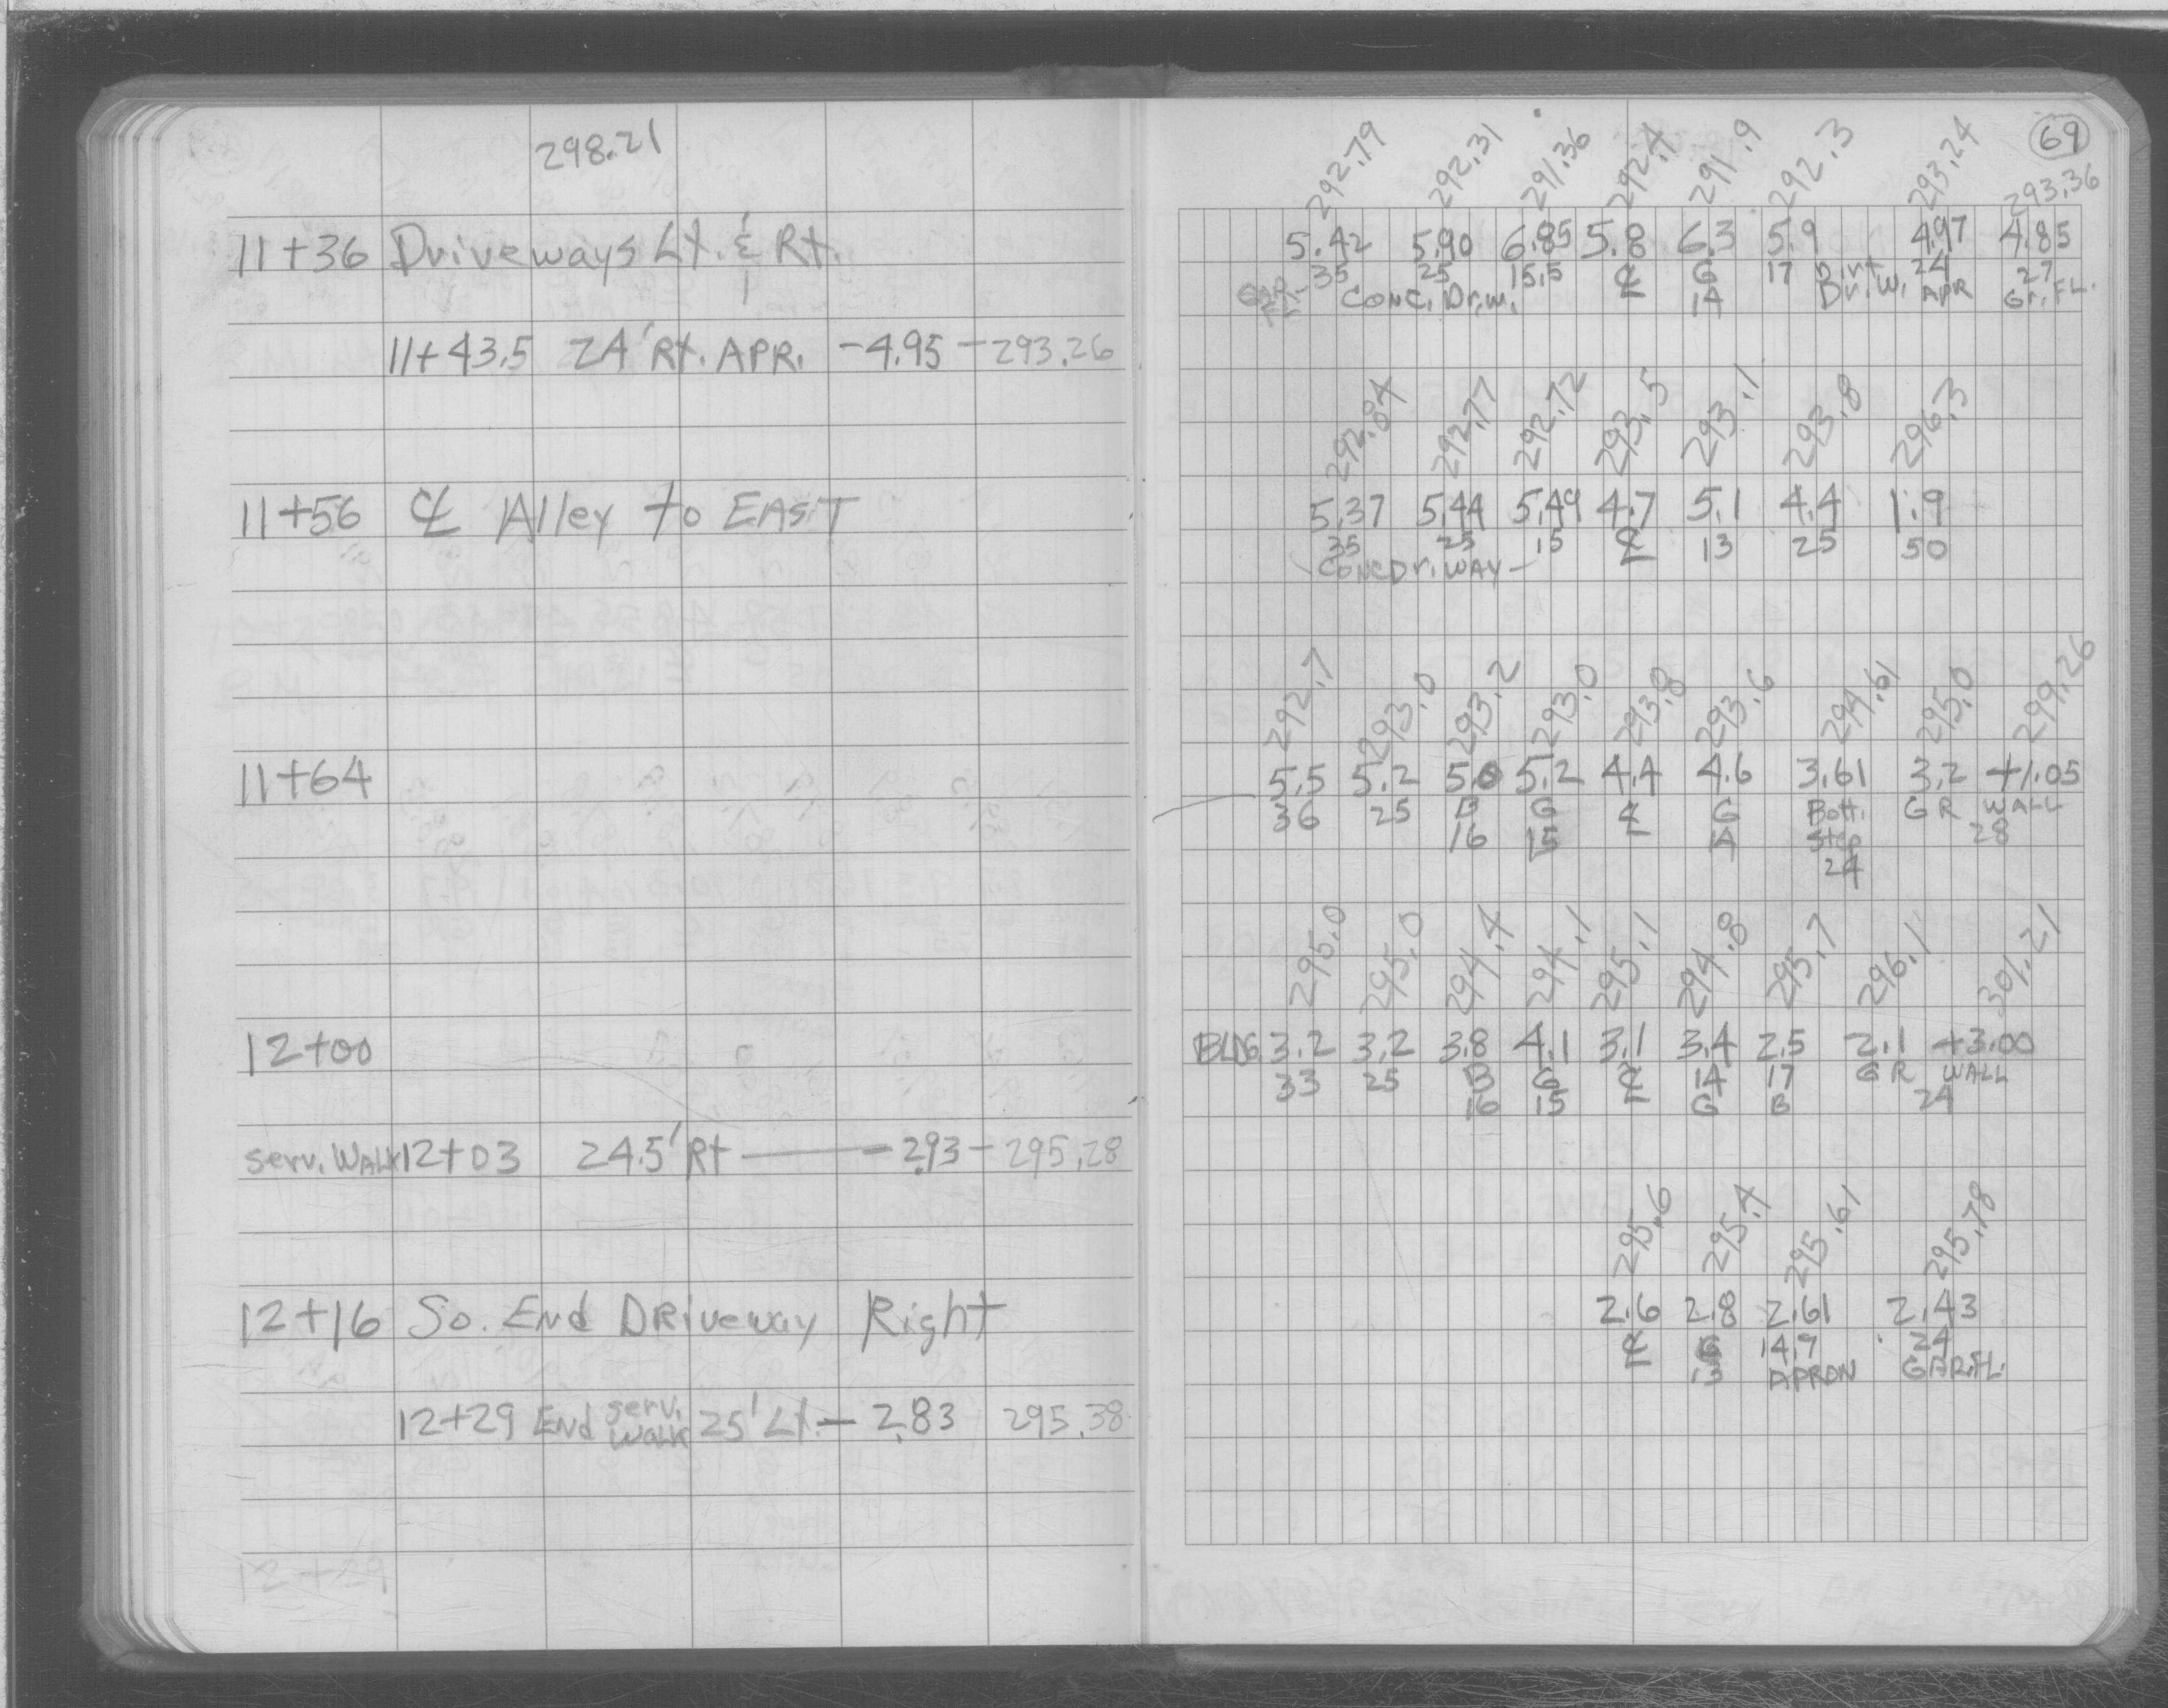 298.21
11+36 Driveways Lt. & Rt.
11+43.5 24' Rt. APR. -4.95 - 293.26
11+56 ℄ Alley to EAST
11+64
12+00
serv. WALK 12+03 24.5' Rt — - 2.93 - 295.28
12+16 So. End DRiveway Right
12+29 End serv. WALK 25' Lt. - 2.83 295.38
69
292.79 292.31 291.36 292.4 291.9 292.3 293.24 293.36
5.42 5.90 6.85 5.8 6.3 5.9 4.97 4.85
35 25 15.5 ℄ G 17 Dirt 24 27
GAR. FL. CONC. Dr.w. 14 Dr.W. APR Gr. FL.
292.84 292.77 292.72 293.5 293.1 293.8 296.3
5.37 5.44 5.49 4.7 5.1 4.4 1.9
35 25 15 ℄ 13 25 50
CONC Dr. WAY
292.7 293.0 293.2 293.0 293.8 293.6 294.61 295.0 299.26
5.5 5.2 5.0 5.2 4.4 4.6 3.61 3.2 +1.05
36 25 B G ℄ G Bott. GR WALL
16 15 14 Step 28
24
295.0 295.0 294.4 294.1 295.1 294.8 295.7 296.1 301.21
BLDG. 3.2 3.2 3.8 4.1 3.1 3.4 2.5 2.1 +3.00
33 25 B G ℄ 14 17 GR WALL
16 15 G B 24
295.6 295.4 295.61 295.78
2.6 2.8 2.61 2.43
℄ G 14.7 24
13 APRON GAR.FL.